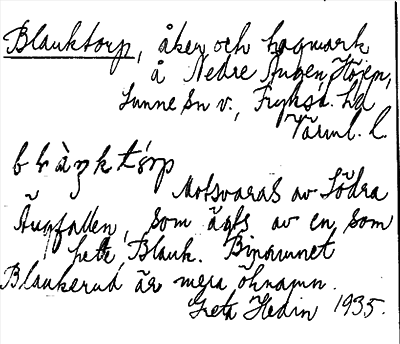 Blanktorp, åker och hagmark
å Nedre Ängen, Höjen,
Sunne sn v., Fryksd. hd
Värml. l.
blàŋktórp
Motsvaras av Södra
Ängfallen, som ägts av en som
hette Blank. Binamnet
Blankerud är mera öknamn.
Greta Hedin 1935.